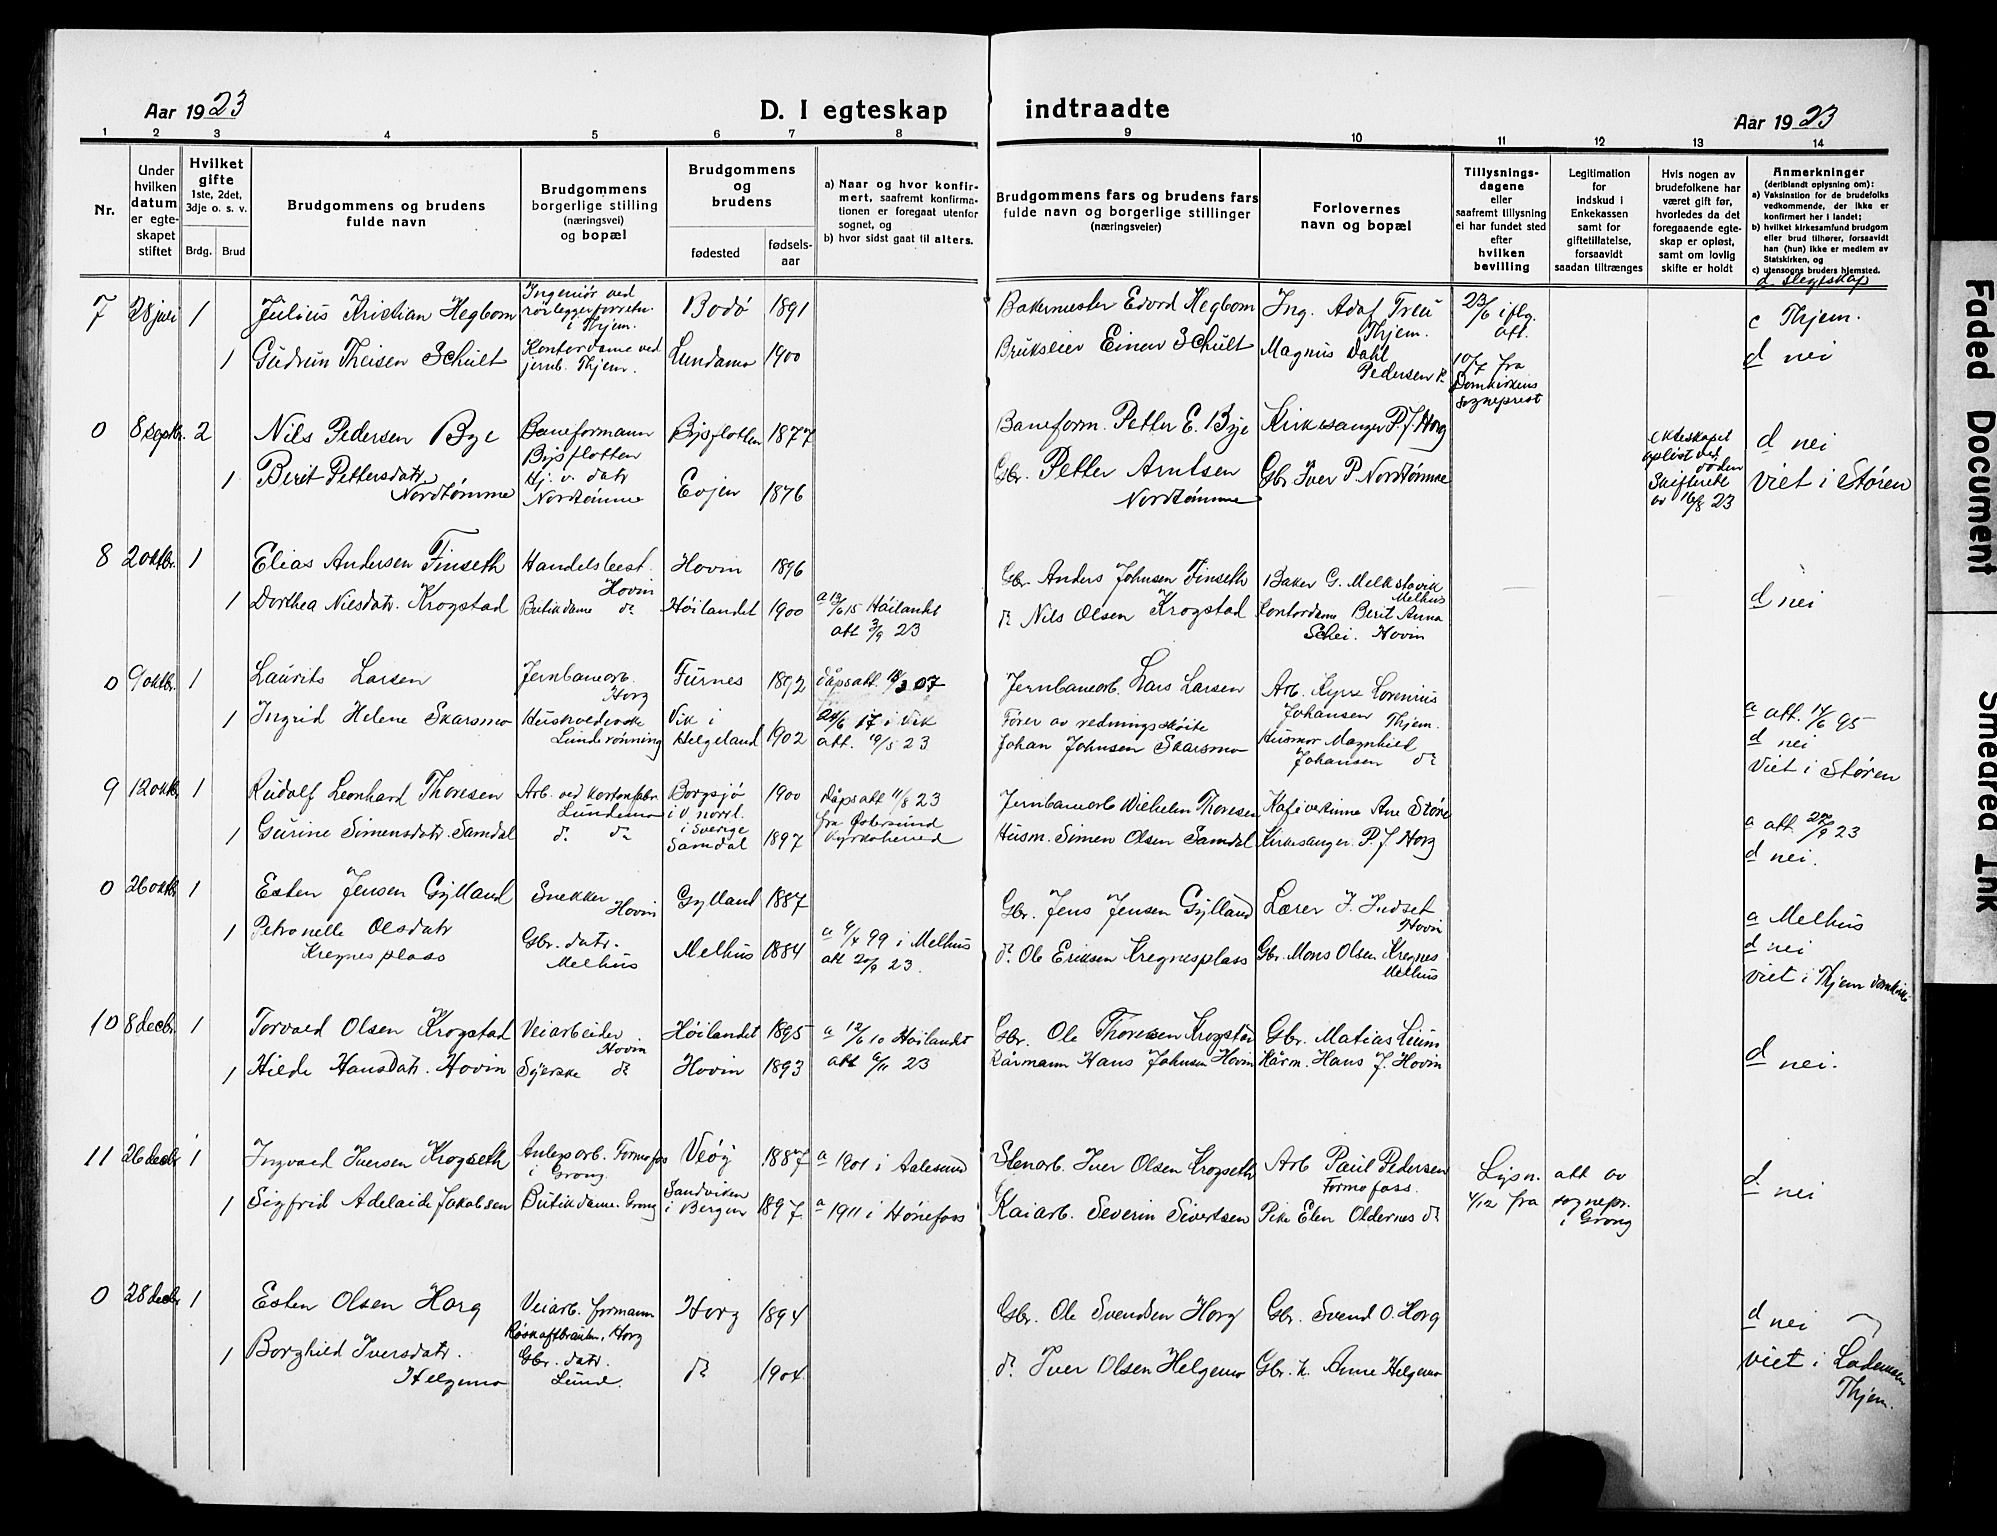 Aar 1923
D. I egteskap indtraadte
Aar 1923
1 2 3 4 5 6 7 8 9 10 11 12 13 14
Nr.
Under hvilken datum er egteskapet stiftet
Hvilket gifte 1ste, 2det, 3dje o. s. v.
Brdg. Brud
Brudgommens og brudens fulde navn
Brudgommens borgerlige stilling (næringsvei) og bopæl
Brudgommens og brudens
fødested
fødsels-aar
a) Naar og hvor konfirmert, saafremt konfirmationen er foregaat utenfor sognet, og
b) hvor sidst gaat til alters.
Brudgommens fars og brudens fars fulde navn og borgerlige stillinger (næringsveier)
Forlovernes navn og bopæl
Tillysningsdagene eller saafremt tillysning ei har fundet sted efter hvilken bevilling
Legitimation for indskud i Enkekassen samt for giftetillatelse, forsaavidt saadan tiltrænges
Hvis nogen av brudefolkene har været gift før, hvorledes da det foregaaende egteskap er opløst, samt om lovlig skifte er holdt
Anmerkninger (deriblandt oplysning om):
a) Vaksination for de brudefolks vedkommende, der ikke er konfirmert her i landet;
b) hvilket kirkesamfund brudgom eller brud tilhører, forsaavidt han (hun) ikke er medlem av Statskirken, og
c) utensogns bruders hjemsted.
d. slegtskap
7 28 juli 1 Julius Kristian Hegbom Ingeniør ved rørleggerforretn. i Thjem. Bodø 1891 Bakermester Edvard Hegbom Ing. Adaf Treu Thjem. 23/6 iflg. att. c Thjem.
1 Gudrun Theisen Schult Kontordame ved jernb. Thjem. Lundamo 1900 Brukseier Einar Schult Magnus Dahl Pedersen do 10/7 fra Domkirkens sogneprest d nei
0 8 septbr. 2 Nils Pedersen Bye Baneformann Bysflotten Bysflotten 1877 Baneform. Petter E. Bye Kirkesanger P. J. Horg Ekteskapet opløst ved døden Skifterett av 16/8 23 d nei
1 Berit Pettersdatr. Nordtømme Hj. v. datr Nordtømme Evjen 1876 Gbr. Petter Arntsen Nordtømme Gbr. Iver P. Nordtømme viet i Støren
8 2 oktbr. 1 Elias Andersen Finseth Handelsbest. Hovin Hovin 1896 Gbr. Anders Johnsen Finseth Baker G. Melkstavik Melhus
1 Dorthea Nilsdatr. Krogstad Butikdame do Høilandet 1900 a 13/6 15 Høilandet att 3/9 23 do Nils Olsen Krogstad Kontordame Berit Anna Schei. Hovin d nei
0 9 oktbr. 1 Laurits Larsen Jernbanearb. Horg Furnes 1892 Dåpsatt. 18/3 07 Jernbanearb. Lars Larsen Arb. Kyrre Lorenius Johansen Thjem. a att. 14/6 95
1 Ingrid Helene Skarsmo Huskvederske Lunderønning Vik i Helgeland 1902 24/6 17 i Vik att. 19/5 23 Fører av redningsskøite Johan Johnsen Skarsmo Husmor Magnhild Johansen do d nei viet i Støren
9 12 oktbr. 1 Rudolf Leonhard Thoresen Arb. ved kartonfabr. Lundemo Borgsjø i V. norrl. i Sverige 1900 Dåpsatt 11/8 23 fra Østersund Kyrkoherred Jernbanearb Wilhelm Thoresen Kafévertinne Ane Støre a att 24/9 23
1 Gurine Simensdatr. Samdal do do Samdal 1897 Husm. Simen Olsen Samdal Kirkesanger. P. J. Horg d nei.
0 26 oktbr. 1 Esten Jensen Gylland Snekker Hovin Gylland 1887 Gbr. Jens Jensen Gylland Lærer J. Indset Hovin a Melhus
1 Petronelle Olsdatr Kregnesplass Gbr. datr. Melhus Melhus 1884 a 9/7 99 i Melhus att 20/9 23. do Ole Eriksen Kregnesplass Gbr. Mons Olsen Kregnes Melhus d nei viet i Thjem domkirke
10 8 decbr. 1 Torvald Olsen Krogstad Veiarbeider Hovin Høilandet 1895 a 12/6 10 Høilandet att 6/11 23 Gbr. Ole Thoresen Krogstad Gbr. Matias Lium
1 Hilde Hansdatr. Hovin Syerske do Hovin 1893 Kårmann Hans Johnsen Hovin Kårm. Hans J. Hovin d nei.
11 26 decbr 1 Ingvald Iversen Krogseth Anlegsarb. Formofos i Grong Veøy 1887 a 1901 i Aalesund Stenarb. Iver Olsen Krogseth Arb Paul Pedersen Formofoss. Lysn. att av
1 Sigfrid Adelaide Jakobsen Butikdame. Grong Sandviken i Bergen 1897 a 1911 i Hønefoss Kaiarb. Severin Sivertsen Pike Elen Oldernes do 4/12 fra sognepr. i Grong d nei
0 28 decbr 1 Esten Olsen Horg Veiarb. formann Røskaftbruken, Horg Horg 1894 Gbr. Ole Svendsen Horg Gbr. Svend O. Horg d nei
1 Borghild Iversdatr. Helgemo Gbr. datr. Lund. do 1904 do Iver Olsen Helgemo Gbr. k. Anne Helgemo viet i Lademoen Thjem.
Faded Document
Smeared Ink